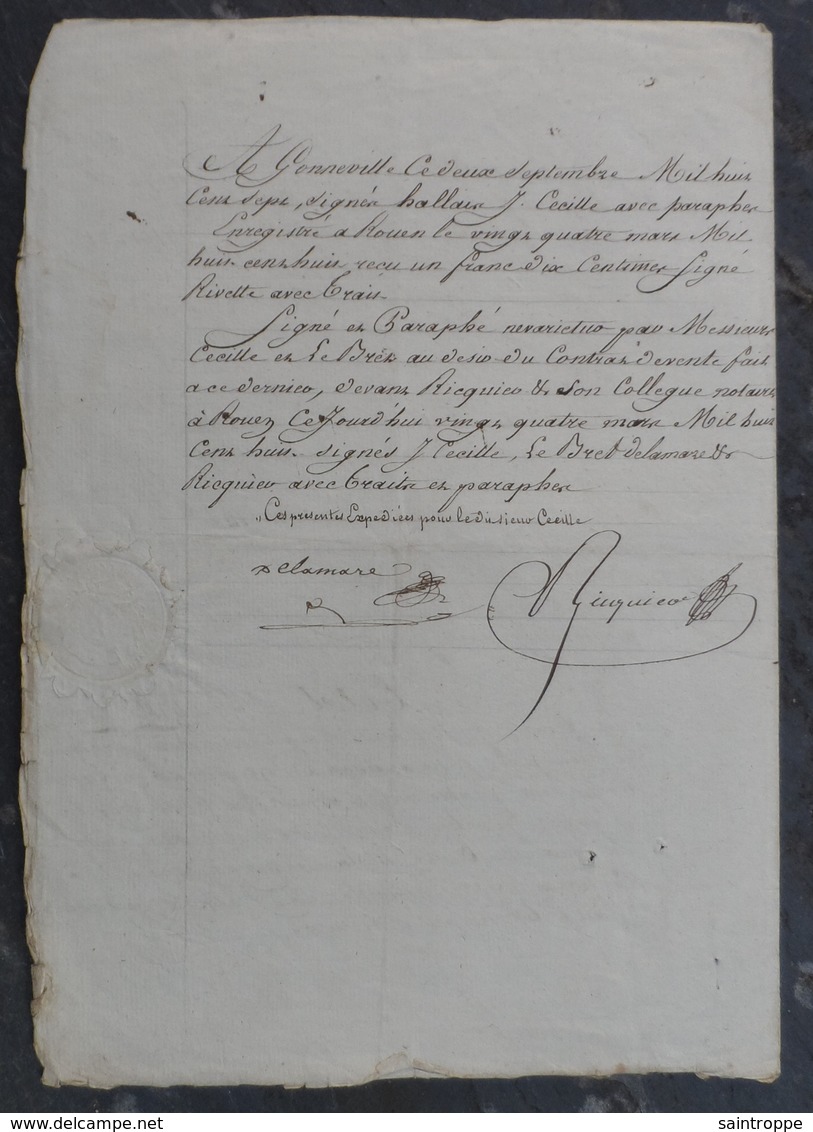 A Gonneville Ce deux septembre Mil huit
Cent sept, signés hallais J. Cecille avec paraphes
Enregistré a Rouen le vingt quatre mars Mil
huit cent huit recu un franc dix Centimes Signé
Rivette avec trait
Signé et Paraphé nevarietur par Messieurs
Cecille et Le Bret au desir du Contrat de vente fait
a ce dernier, devant Ricquier & son Collegue notaires
à Rouen Ce Jourd'hui vingt quatre mars Mil huit
Cent huit signés J Cecille, Le Bret delamare &
Ricquier avec traits et paraphes
"Ces presentes Expediées pour le du sieur Cecille
Delamare
Ricquier
saintroppe